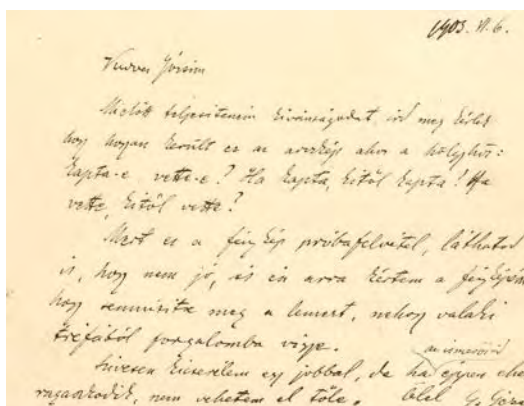 1903. VI. 6.
Kedves Józsim
Mielőtt teljesiteném kivánságodat, ird meg kérlek
hogy hogyan került ez az arczkép ahoz a hölghöz:
kapta-e vette-e? Ha kapta, kitől kapta! Ha
vette, kitől vette?
Mert ez a fénykép próbafelvétel, láthatod
is, hogy nem jó, és én arra kértem a fényképészt
hogy semmisitse meg a lemezt, nehogy valaki
tréfából forgalomba vigye.
az ismerősöd
Szivesen kicserélem egy jobbal, de ha éppen ehez
ragaszkodik, nem vehetem el tőle. Ölel G. Géza